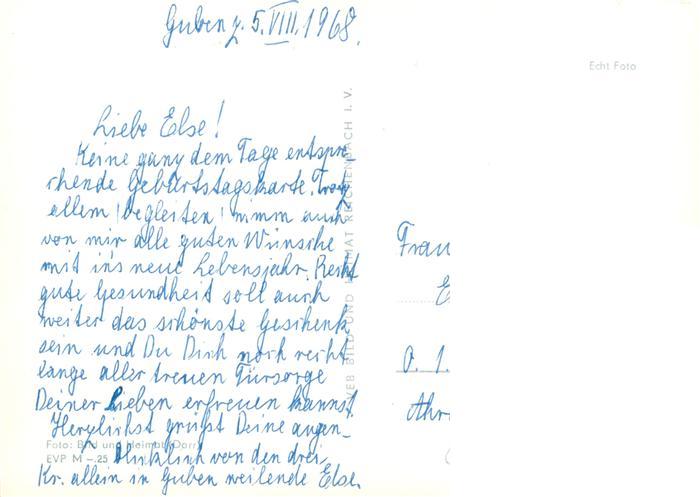 Guben, d. 5. VIII. 1968.
Echt Foto
Liebe Else!
Keine ganz dem Tage entspre-
chende Geburtstagskarte. Trotz
allem nimm auch
von mir alle guten Wünsche
mit in's neue Lebensjahr. Recht
gute Gesundheit soll auch
weiter das schönste Geschenk
sein und Du Dich noch recht
lange aller treuen Fürsorge
Deiner Lieben erfreuen kannst.
Herzlichst grüßt Deine augen-
blicklich von den drei
Kr. allein in Guben weilende Else.
Foto: Bild und Heimat (Dorr)
EVP M –.25
VEB BILD UND HEIMAT REICHENBACH I. V.
Frau
E
O. 1.
Ahr